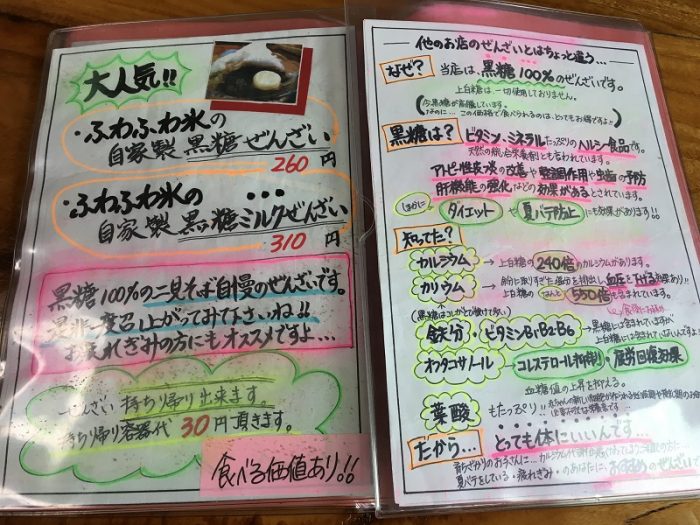 大人気!!
・ふわふわ氷の
自家製 黒糖ぜんざい
260円
・ふわふわ氷の
自家製 黒糖ミルクぜんざい
310円
黒糖100%の二見そば自慢のぜんざいです。
是非一度召し上がってみて下さいね!!
お疲れぎみの方にもオススメですよ…
ぜんざい 持ち帰り出来ます。
持ち帰り容器代 30円頂きます。
食べる価値あり!!
他のお店のぜんざいとはちょっと違う…
なぜ?
当店は、黒糖100%のぜんざいです。
上白糖は一切使用しておりません。
なのに…この価格で食べられるのは、とってもお得ですよ♪
黒糖は?
ビタミン、ミネラルたっぷりのヘルシー食品です。
天然の総合栄養剤とも言われています。
アトピー性皮炎の改善や整調作用や虫歯の予防
肝機能の強化などの効果があるとされています。
ほかに
ダイエットや夏バテ防止にも効果があります!!
知ってた?
カルシウム→上白糖の240倍のカルシウムがあります。
カリウム→余分に取りすぎた塩分を排出し、血圧を下げる効果あり!
上白糖のなんと550倍も含まれています。
鉄分・ビタミンB1・B2・B6→黒糖には含まれていますが、
上白糖には含まれていないんですよ!!
オクタコサノール→コレステロール抑制・疲労回復効果
血糖値の上昇を抑える。
葉酸
もたっぷり!!
だから…
とっても体にいいんです…
育ちざかりのお子さんに…
夏バテをしている・疲れぎみ・のあなたに、おすすめのぜんざいで